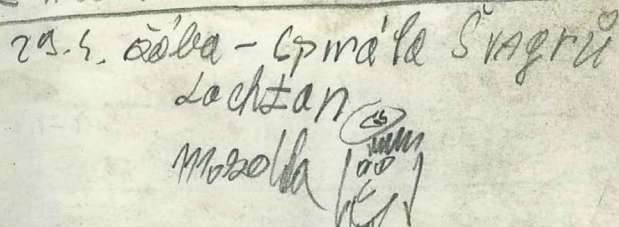 29.5. žába - Spirála Švagrů
Lachtan
mozolka